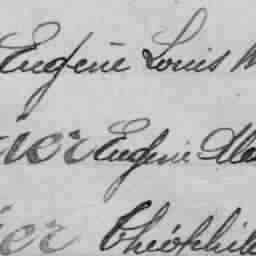 Eugène Louis
ier Eugène
ier Théophile